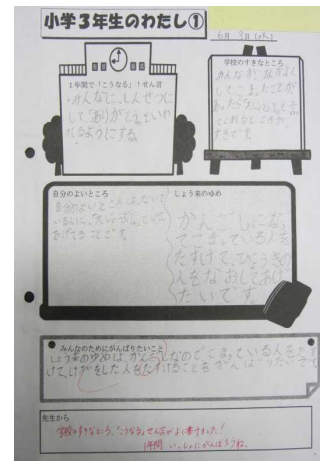 小学3年生のわたし①
6月9日(水)
1年間で「こうなる」!せん言
みんなに、しんせつに
して、「ありがとう」といわ
れるようにする。
学校のすきなところ
みんながなかよく
して、こまったことが
あったら
くれるところが
すきです。
自分のよいところ
自分のよいところは、ないて
いる人に、「大じょうぶ」といって
あげれることです。
しょう来のゆめ
かんごしになっ
てこまっている人を
たすけて、びょうきの
人をなおしてあげ
たいです。
みんなのためにがんばりたいこと
しょう来のゆめは、かんごしなのでこまっている人をたす
けて、けがをした人をたすけることをがんばりたいです
先生から
学校のすきなところ、「こうなる」せん言がよく書けました!
1年間、いっしょにがんばろうね。